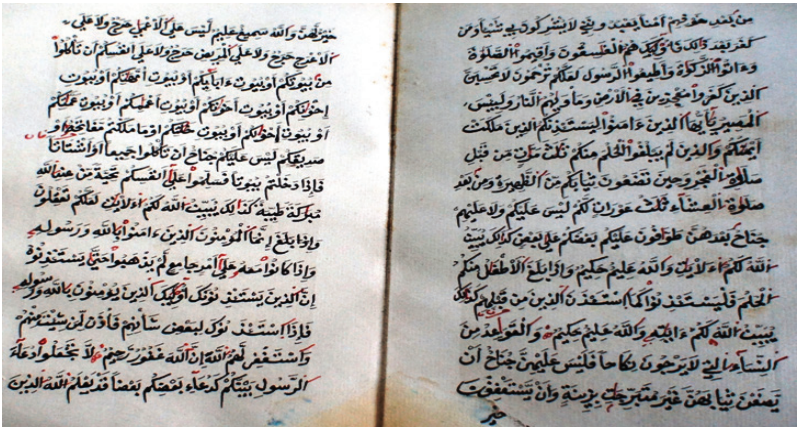 مِن بعد خوفهم أمنا يعبدونني لا يشركون بي شيئا ومن
كفر بعد ذلك فأوليك هم الفسقون وأقيموا الصلوة
وءاتوا الزكوة وأطيعوا الرسول لعلكم ترحمون لا تحسبن
الذين كفروا معجزين في الأرض ومأويهم النار ولبيس
المصير يأيها الذين ءامنوا ليستئذنكم الذين ملكت
أيمنكم والذين لم يبلغوا الحلم منكم ثلث مرت من قبل
صلوة الفجر وحين تضعون ثيابكم من الظهيرة ومن بعد
صلوة العشاء ثلث عورات لكم ليس عليكم ولا عليهم
جناح بعدهن طوافون عليكم بعضكم على بعض كذلك يبين
الله لكم الأيت والله عليم حكيم وإذا بلغ الأطفل منكم
الحلم فليستئذنوا كما استئذن الذين من قبلهم كذلك
يبين الله لكم ءايته والله عليم حكيم والقوعد من
النساء التي لا يرجون نكاحا فليس عليهن جناح أن
يضعن ثيابهن غير متبرجت بزينة وأن يستعففن
خير
خير لهن والله سميع عليم ليس على الأعمى حرج ولا على
الأعرج حرج ولا على المريض حرج ولا على أنفسكم أن تأكلوا
من بيوتكم أو بيوت ءابايكم أو بيوت أمهتكم أو بيوت
إخونكم أو بيوت أخوتكم أو بيوت أعممكم أو بيوت عمتكم
أو بيوت أخولكم أو بيوت خلتكم أو ما ملكتم مفاتحه أو
صديقكم ليس عليكم جناح أن تأكلوا جميعا أو أشتاتا
فإذا دخلتم بيوتا فسلموا على أنفسكم تحية من عند الله
مبركة طيبة كذلك يبين الله لكم الأيت لعلكم تعقلون
إنما المؤمنون الذين ءامنوا بالله ورسوله
وإذا كانوا معه على أمر جامع لم يذهبوا حتى يستئذنوه
إن الذين يستئذنونك أوليك الذين يومنون بالله ورسوله
فإذا استئذنوك لبعض شأنهم فأذن لمن شيت منهم
واستغفر لهم الله إن الله غفور رحيم لا تجعلوا دعاء
الرسول بينكم كدعاء بعضكم بعضا قد يعلم الله الذين